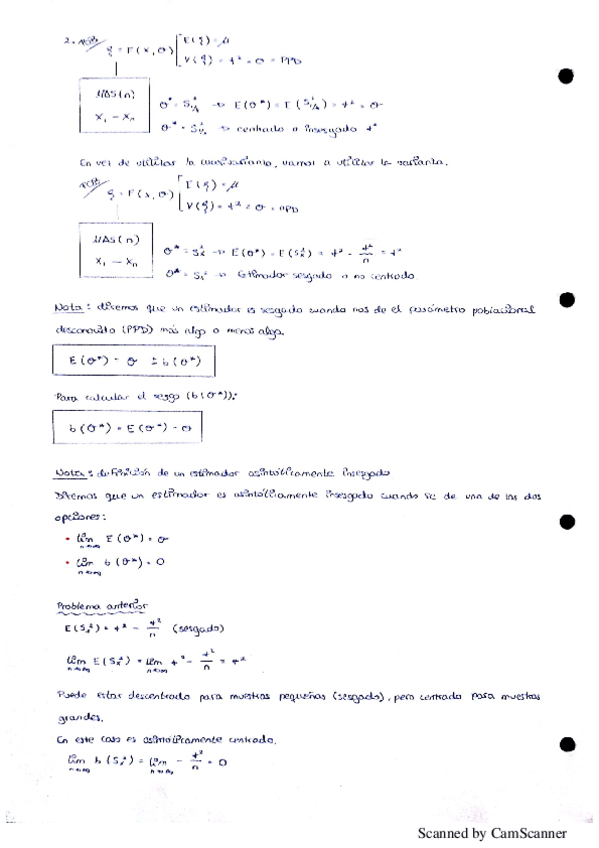 2. POB ξ = F(x, θ) E(ξ) = μ
V(ξ) = σ² = θ = PPD
MAS(n)
X₁ - Xₙ
θ* = S²₁/ₓ → E(θ*) = E(S²₁/ₓ) = σ² = θ
θ* = S²₁/ₓ → centrado o insesgado σ²
En vez de utilizar la cuasivarianza, vamos a utilizar la varianza.
POB ξ = F(x, θ) E(ξ) = μ
V(ξ) = σ² = θ = PPD
MAS(n)
X₁ - Xₙ
θ* = Sₓ² → E(θ*) = E(Sₓ²) = σ² - σ²/n ≠ σ²
θ* = Sₓ² → Estimador sesgado o no centrado
Nota: diremos que un estimador es sesgado cuando nos de el parámetro poblacional
desconocido (PPD) más algo o menos algo.
E(θ*) = θ ± b(θ*)
Para calcular el sesgo (b(θ*)):
b(θ*) = E(θ*) - θ
Nota: definición de un estimador asintóticamente insesgado
Diremos que un estimador es asintóticamente insesgado cuando se de una de las dos
opciones:
• lim n→∞ E(θ*) = θ
• lim n→∞ b(θ*) = 0
Problema anterior
E(Sₓ²) = σ² - σ²/n (sesgado)
lim n→∞ E(Sₓ²) = lim n→∞ σ² - σ²/n = σ²
Puede estar descentrado para muestras pequeñas (sesgado), pero centrado para muestras
grandes.
En este caso es asintóticamente centrado.
lim n→∞ b(Sₓ²) = lim n→∞ - σ²/n = 0
Scanned by CamScanner